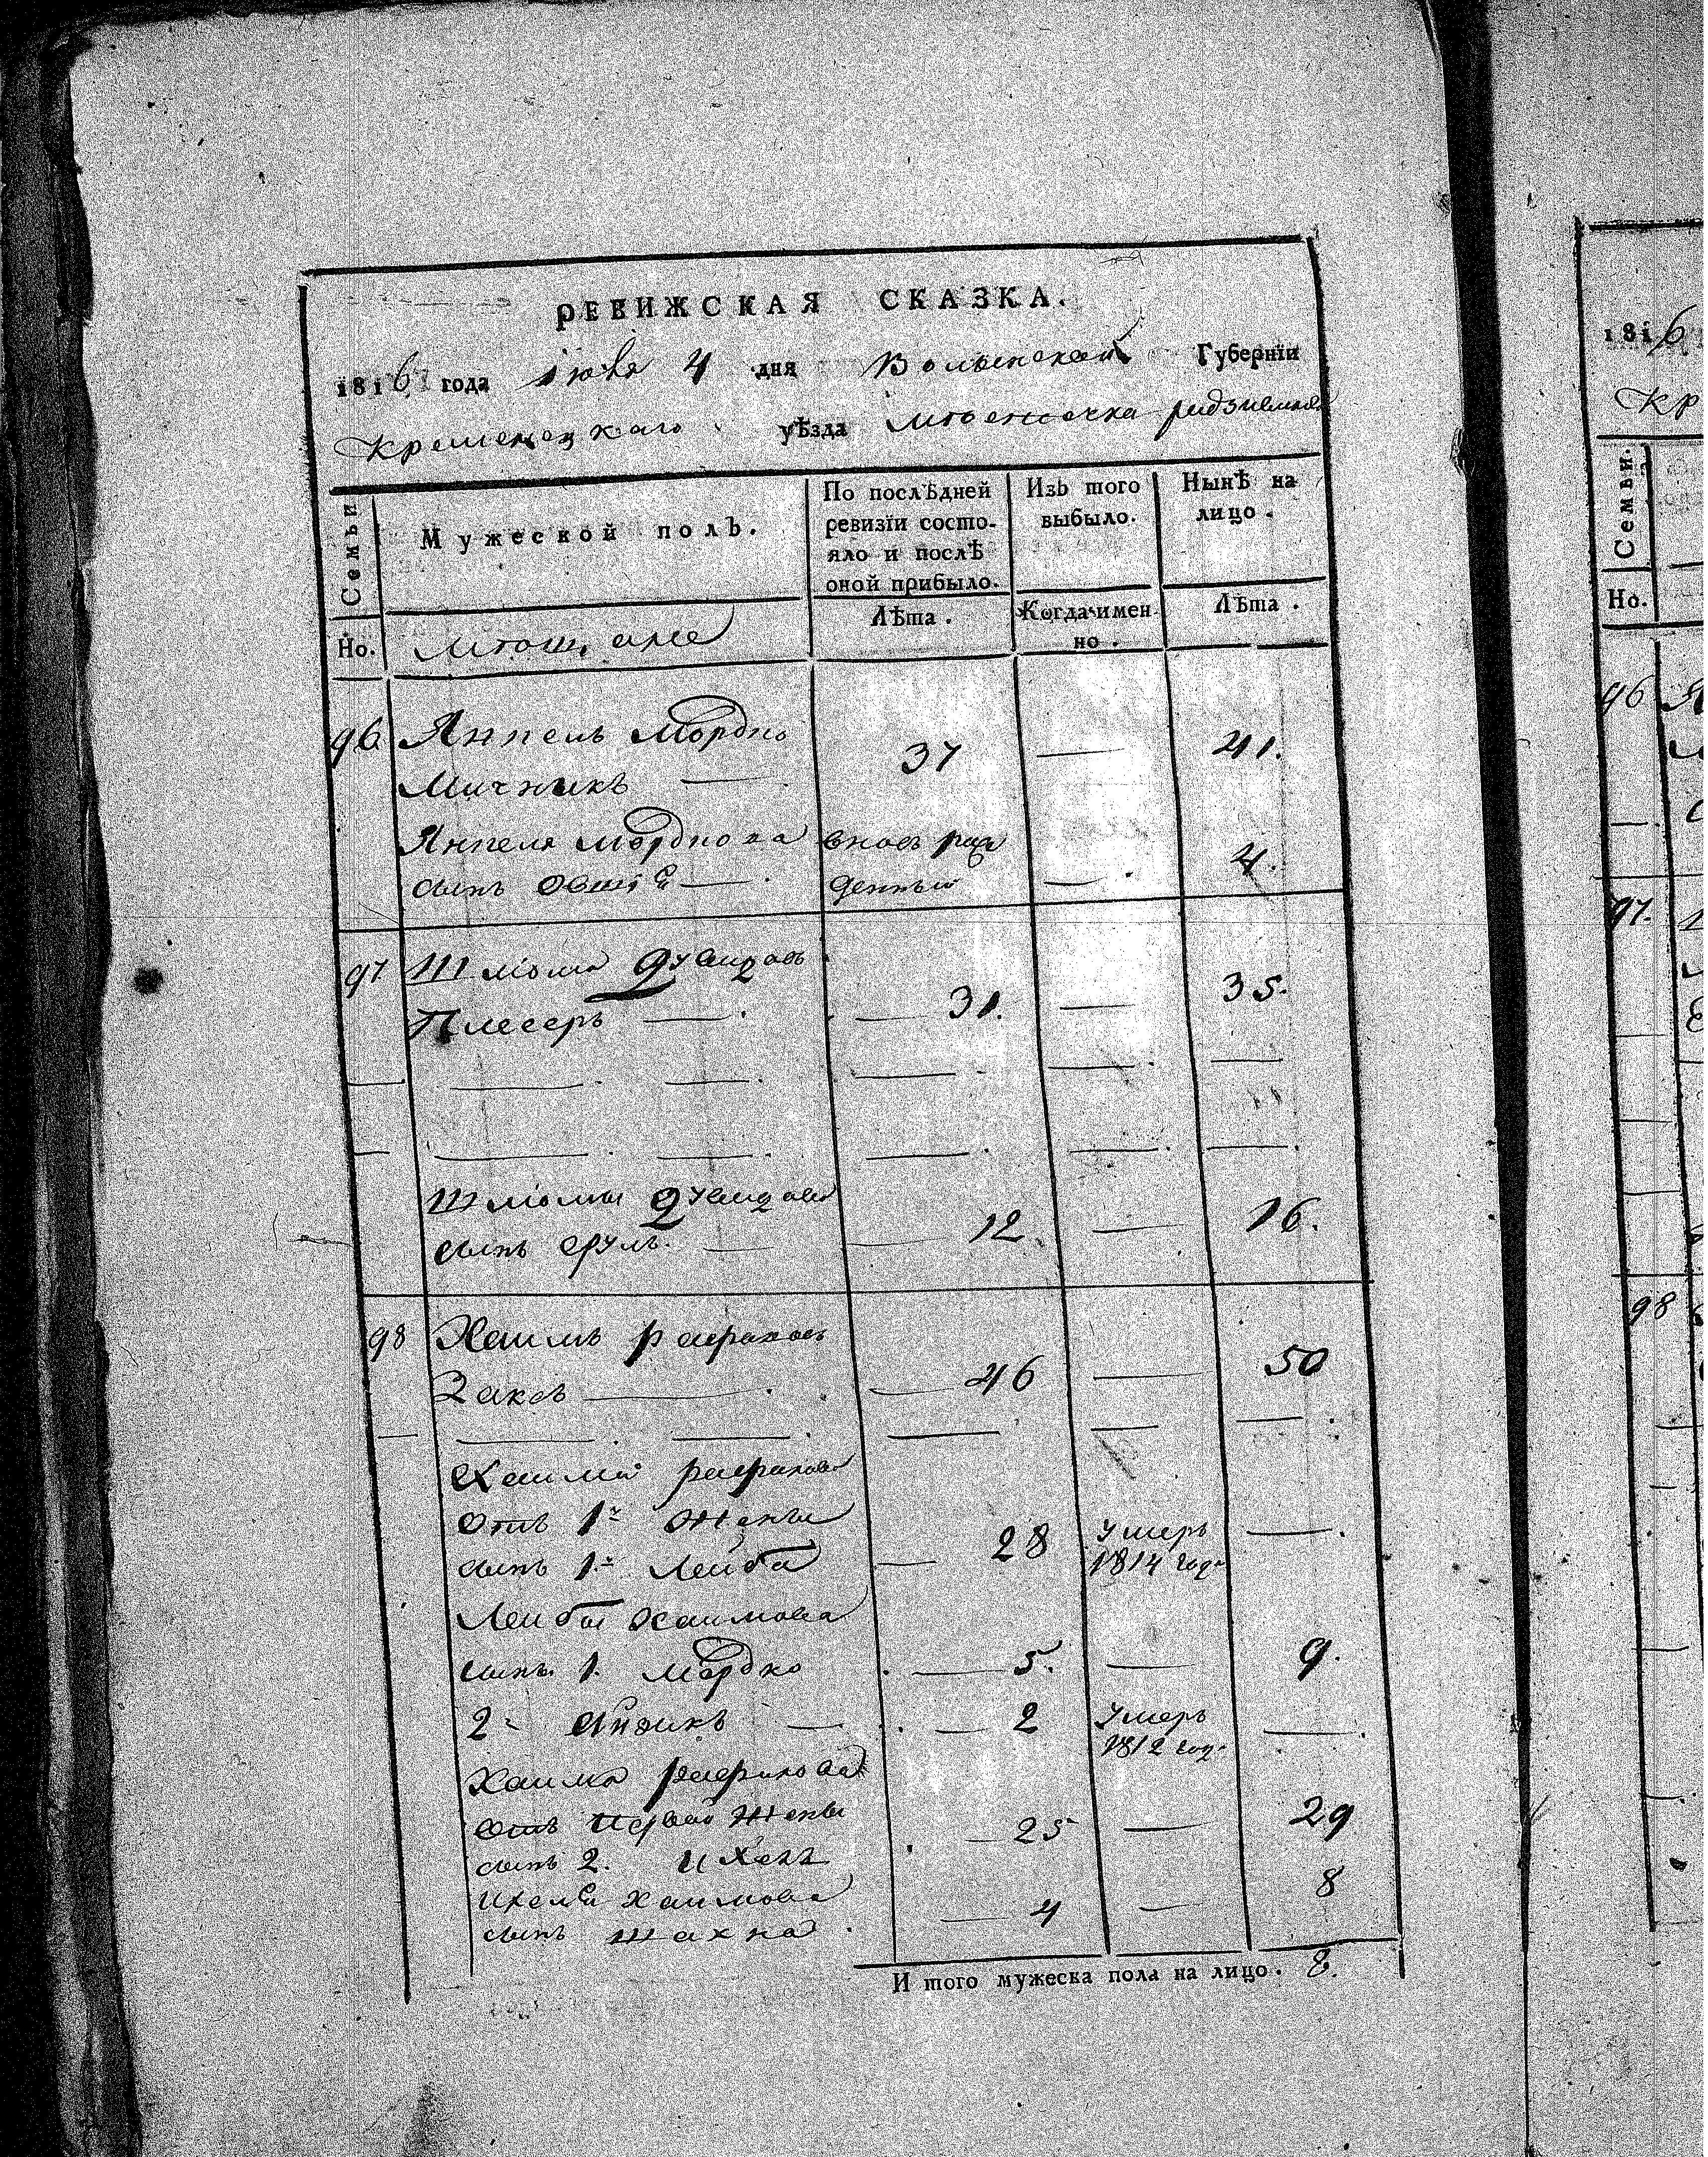 РЕВИЖСКАЯ СКАЗКА.
1816 года июня 4 дня Волынской Губернїи
Кременецкаго уѣзда мѣстечка
Семьи
Мужеской полъ.
По послѣдней ревизїи состо-
яло и послѣ оной прибыло.
Изъ того выбыло.
Нынѣ на лицо.
Но.
мѣщане
Лѣта.
Когда имен-
но.
Лѣта.
96 Янкель Мордко
Мичникъ — 37 — 41.
Янкеля Мордкова вновь рож
сынъ Овшiй — денный — 4.
97 Шлiома Дувидовъ
Плесеръ — 31. — 35.
Шлiомы Дувидова
сынъ Сруль — 12. — 16.
98 Хаимъ Рафаловъ
Заксъ — 46 — 50
Хаима Рафалова
отъ 1й жены
сынъ 1й Лейба — 28 умеръ 1814 год —
Лейбы Хаимова
сынъ 1. Мордко — 5. — 9.
2й Айзикъ — 2 умеръ 1812 год —
Хаима Рафалова
отъ первой жены
сынъ 2. Ихелъ — 25 — 29
Ихеля Хаимова
сынъ Шахна — 4 — 8
И того мужеска пола на лицо. 8.
1816
Кр
Семьи.
Но.
96
97.
98